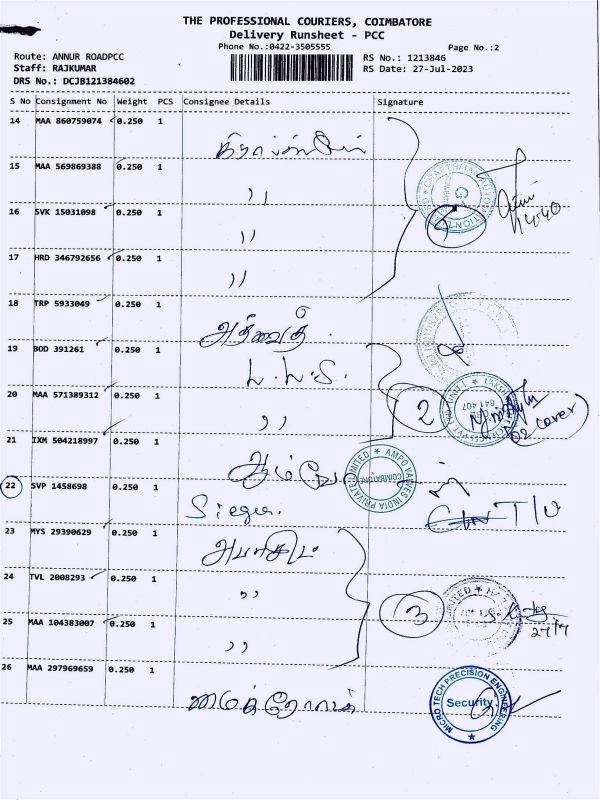 THE PROFESSIONAL COURIERS, COIMBATORE
Delivery Runsheet - PCC
Phone No.:0422-3505555
Page No.:2
Route: ANNUR ROADPCC
RS No.: 1213846
Staff: RAJKUMAR
RS Date: 27-Jul-2023
DRS No.: DCJB121384602
S No Consignment No Weight PCS Consignee Details Signature
14 MAA 860759074 0.250 1
15 MAA 569869388 0.250 1 ,,
16 SVK 15031098 0.250 1 ,,
17 HRD 346792656 0.250 1 ,,
18 TRP 5933049 0.250 1 அத்வைத்
19 BOD 391261 0.250 1 L.L.S.
20 MAA 571389312 0.250 1 ,, 2
641 407
(02 cover)
21 IXM 504218997 0.250 1
AMPO VALVES INDIA PRIVATE LIMITED ★ COIMBATORE
22 SVP 1458698 0.250 1 Sieger. T/V
23 MYS 29390629 0.250 1
24 TVL 2008293 0.250 1 ,, 3
27/7
25 MAA 104383007 0.250 1 ,,
26 MAA 297969659 0.250 1
MICRO TECH PRECISION ENGINEERING ★ Security